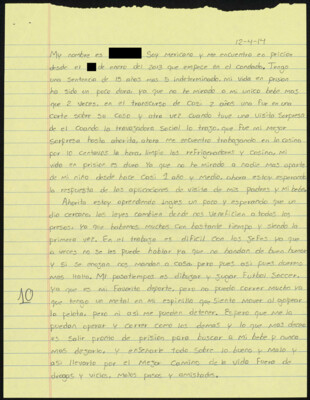 12-4-14
My nombre es Soy mexicano y me encuentro en prision
desde el de enero del 2013 que empece en el condado. Tengo
una sentencia de 15 años mas 5 indeterminado. mi vida en prision
ha sido un poco dura ya que no he mirado a mi unico bebe mas
que 2 veces. en el transcurso de Casi 2 años una fue en una
corte sobre su caso y otra vez cuando tuve una visita surpresa
de el Cuando la trabajadora Social lo trajo. que fue mi mejor
surpresa hasta ahorita, ahora me encuentro trabajando en la cocina
por 10 centavos la hora limpio los refrigeradores y cocina. mi
vida en prision es dura Ya que no he mirado a nadie mas aparte
de mi niño desde hace Casi 2 años y medio. ahora estoy esperando
la respuesta de las aplicaciones de visita de mis padres y mi bebe.
Ahorita estoy aprendiendo ingles un poco y esperando que un
dia cercano las leyes cambien donde nos beneficien a todos los
presos. ya que habemos muchos con bastante tiempo y siendo la
primera vez. En mi trabajo es dificil con los jefes ya que
a veces no se les puede hablar ya que no andan de buen humor
y si se enojan nos mandan a casa pero pues asi pues duramos
mas horas. Mi pasatiempos es dibujar y jugar Futbol Soccer.
Ya que es mi Favorito deporte. pero no puedo correr mucho ya
que tengo un metal en mi espinilla que siento mover al golpear
la pelota, pero ni asi me pueden detener. Espero que me lo
puedan operar y correr como los demas y lo que mas deseo
es salir pronto de prision para buscar a mi bebe y nunca
mas dejarlo. Y enseñarle todo sobre lo bueno y Malo y
asi llevarlo por el Mejor Camino de la vida Fuera de
drogas y vicios. Malos pasos y amistades.
10